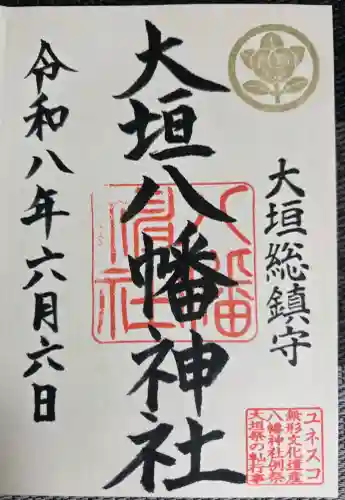 大垣総鎮守
大垣八幡神社
令和八年六月六日
八幡
神社
ユネスコ
無形文化遺産
八幡神社例祭
大垣祭の𨋳行事